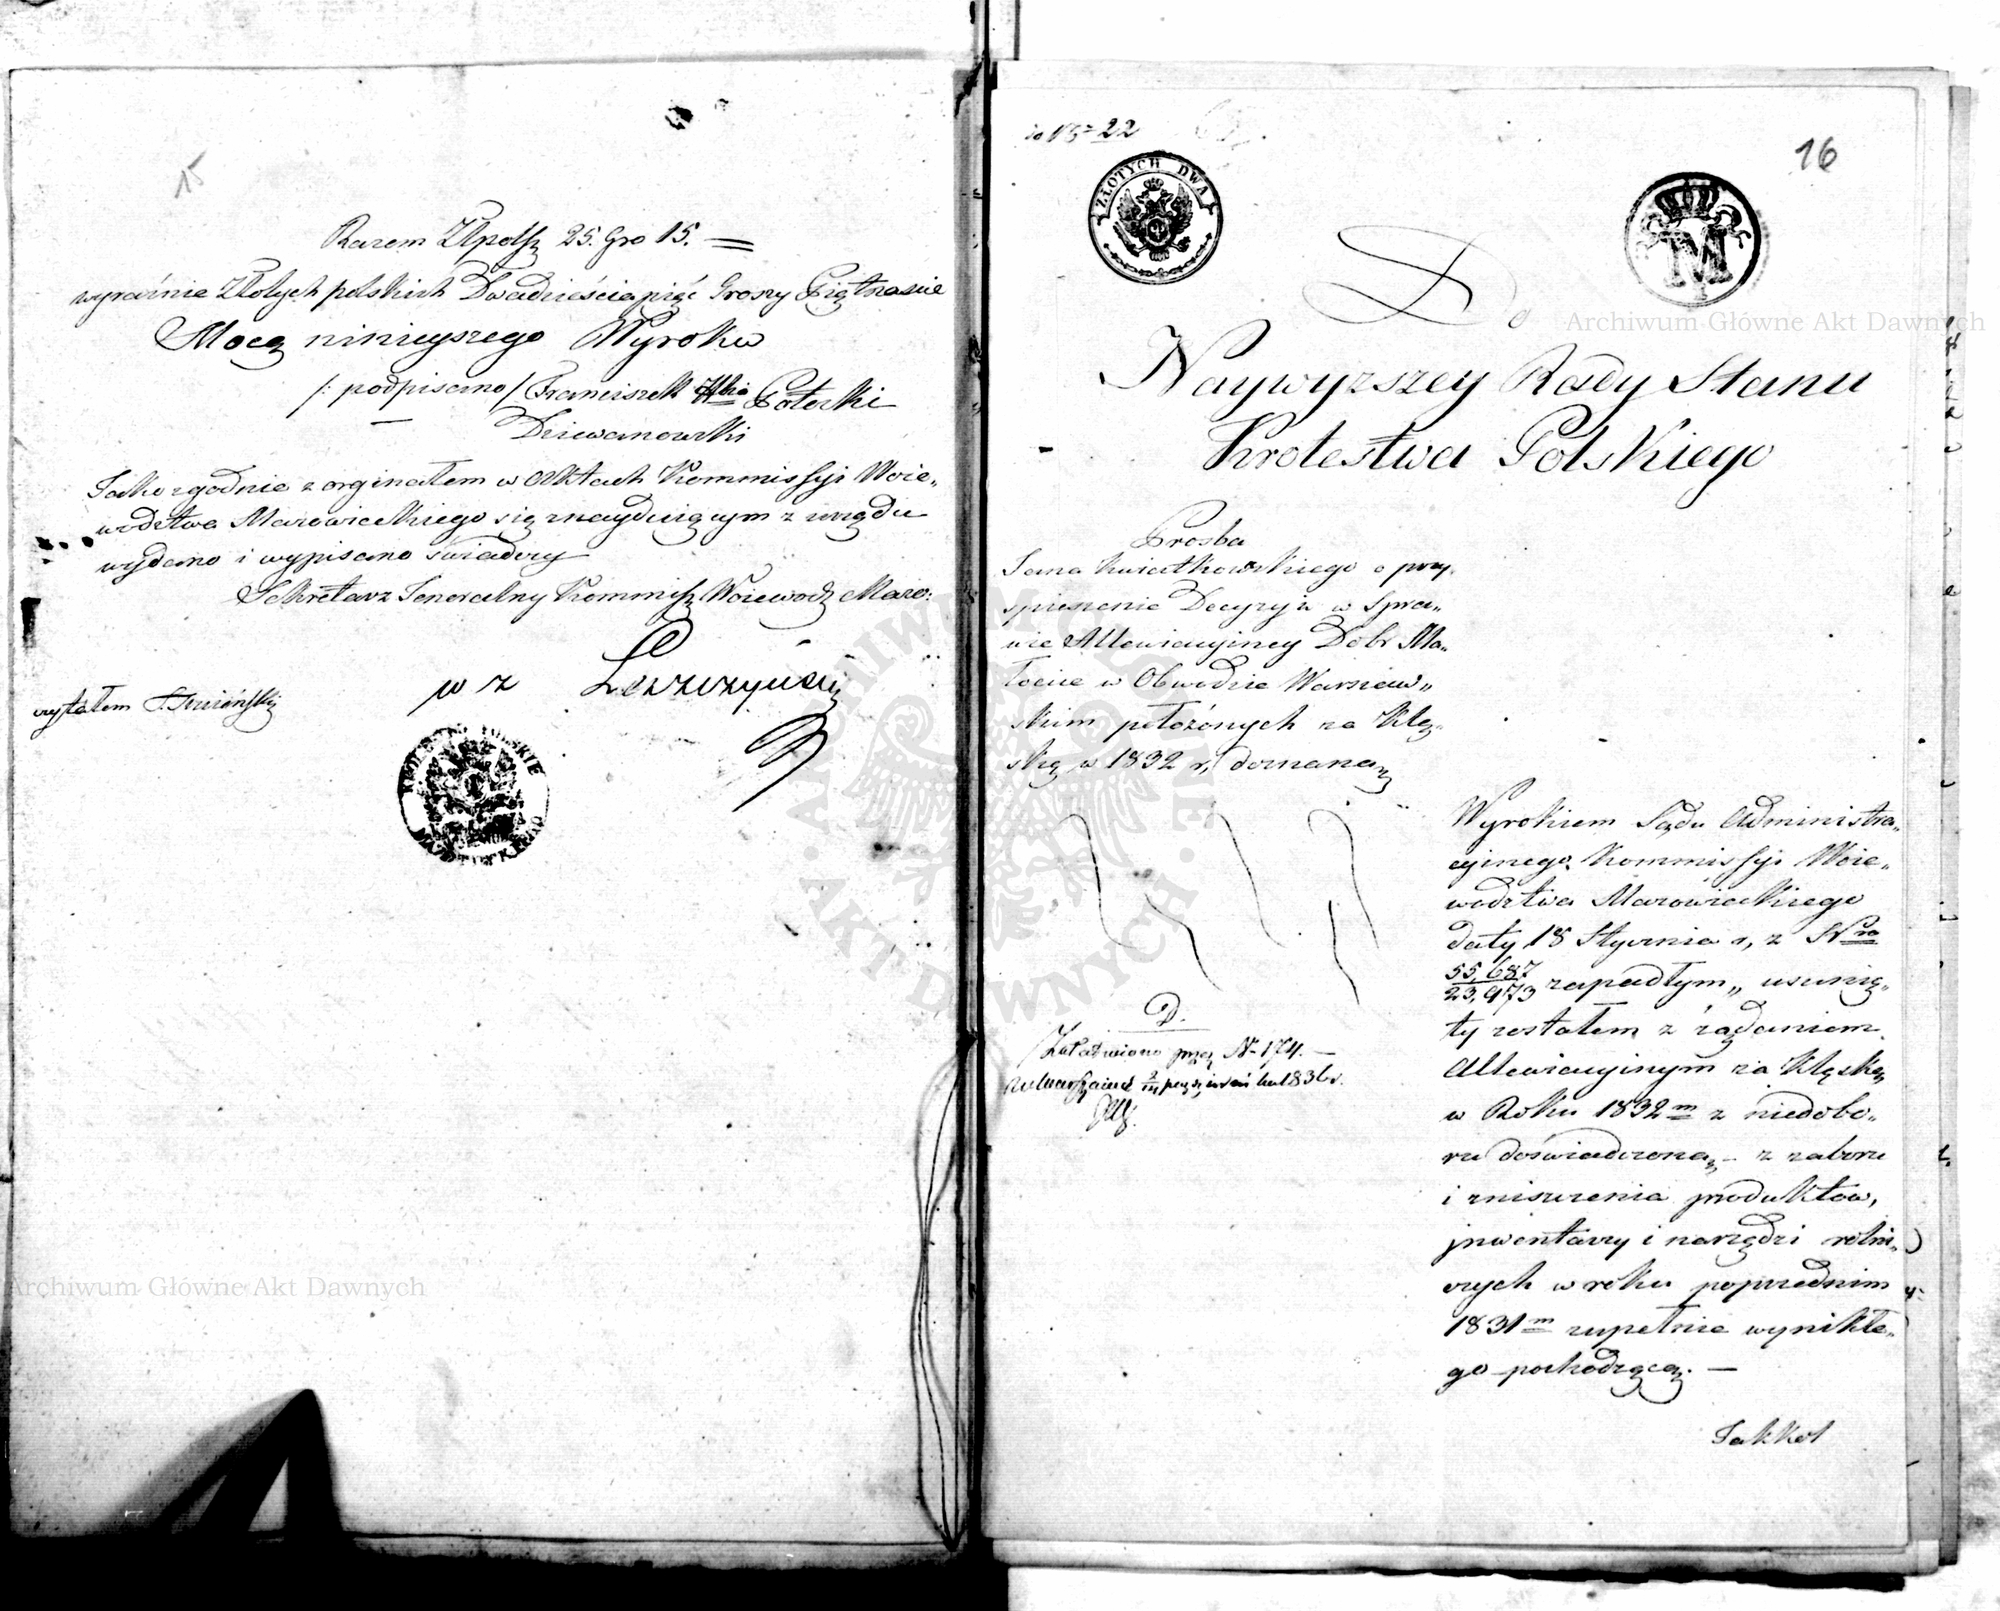 15
Razem Złpolsz 25. Gro 15. =
wyraźnie Złotych polskich Dwadzieścia pięć Groszy Piętnaście
Mocą ninieyszego Wyroku
/: podpisano / Franciszek Potocki
Dziewanowski
Jako zgodnie z orginałem w Aktach Kommissyi Woie„
wodztwa Mazowieckiego się znayduiącym z urzędu
wydano i wypisano świadczy
Sekretarz Jeneralny Kommissyi Woiewodz Mazo:
w z Leszczyński
czytałem
KRÓLESTWO POLSKIE
do Nr 22
16
ZŁOTYCH DWA
Do
Naywyzszey Rady Stanu
Krolestwa Polskiego
Prosba
Jana Kwiatkowskiego o przy„
spieszenie Decyzyi w Spra„
wie Allewiacyiney Dobr Ma„
łocice w Obwodzie Warszaw„
skim położonych za Klę„
skę w 1832 r, doznaną
D.
Załatwiono przez Nr 174.
1836 r.
Wyrokiem Sądu Administra„
cyinego Kommissyi Woie„
wodztwa Mazowieckiego
daty 18 Stycznia r, z Nro
55,687
23,973 zapadłym„ usunię„
ty zostałem z żądaniem
Allewiacyinym za Klęskę
w Roku 1832m z niedobo„
ru doświadczoną, – z zaboru
i zniszczenia produktów,
jnwentarzy i narzędzi rolni„
czych w roku poprzednim
1831m zupełnie wynikłe„
go pochodzącą. —
Jakkol
Archiwum Główne Akt Dawnych
Archiwum Główne Akt Dawnych
ARCHIWUM GŁÓWNE AKT DAWNYCH